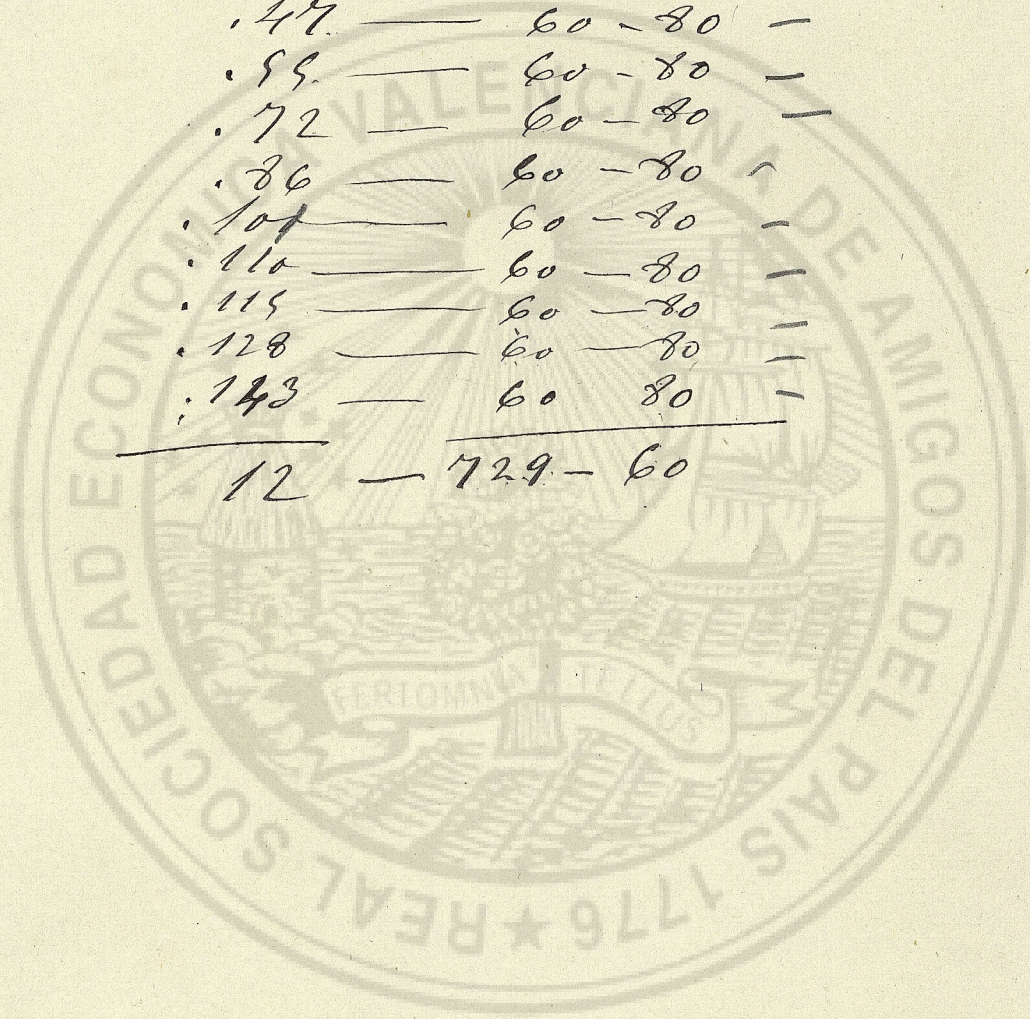 .47. — 60 - 80 —
.55. — 60 - 80 —
.72 — 60 - 80 —
.86 — 60 - 80 -
.101 — 60 - 80 —
.110 — 60 - 80 —
.115 — 60 - 80 —
.128 — 60 - 80 —
.143 — 60 80 —
12 — 729 - 60
REAL SOCIEDAD ECONOMICA VALENCIANA DE AMIGOS DEL PAIS 1776 ★
FERT OMNIA TELLUS